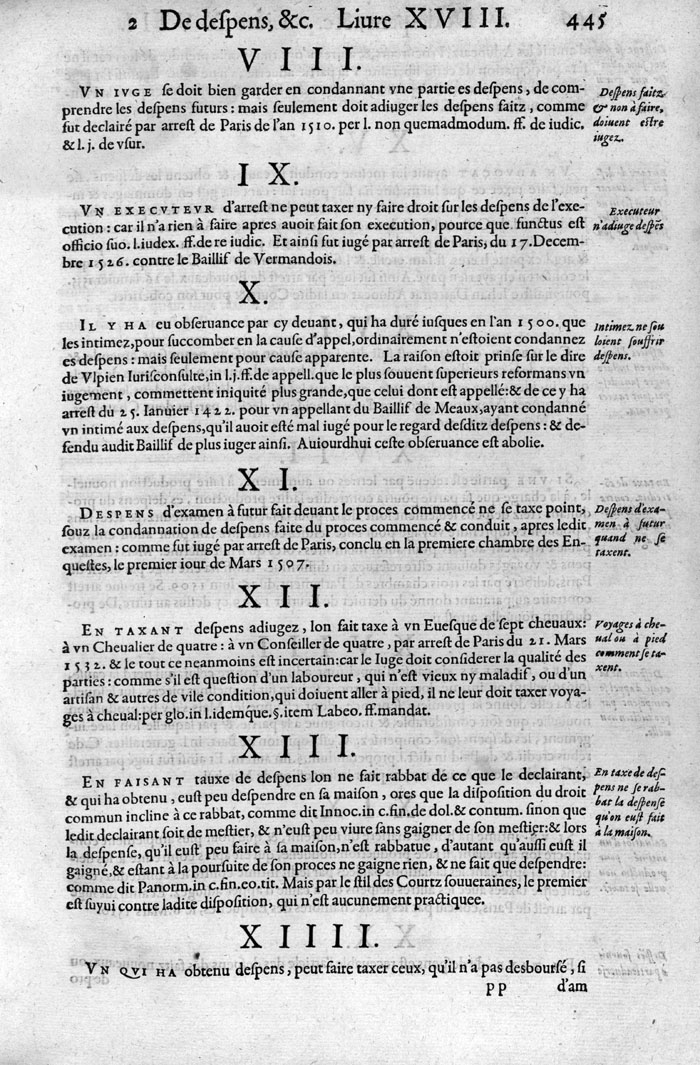 2 De despens, &c. Liure XVIII. 445
VIII.
VN IVGE se doit bien garder en condannant vne partie es despens, de com-
prendre les despens futurs: mais seulement doit adiuger les despens faitz, comme
fut declairé par arrest de Paris de l'an 1510. per l. non quemadmodum. ff. de iudic.
& l. j. de vsur.
Despens faitz
& non à faire,
doiuent estre
iugez.
IX.
VN EXECVTEVR d'arrest ne peut taxer ny faire droit sur les despens de l'exe-
cution: car il n'a rien à faire apres auoir fait son execution, pource que functus est
officio suo. l. iudex. ff. de re iudic. Et ainsi fut iugé par arrest de Paris, du 17. Decem-
bre 1526. contre le Baillif de Vermandois.
Executeur
n'adiuge despēs
X.
IL Y HA eu obseruance par cy deuant, qui ha duré iusques en l'an 1500. que
les intimez, pour succomber en la cause d'appel, ordinairement n'estoient condannez
es despens: mais seulement pour cause apparente. La raison estoit prinse sur le dire
de Vlpien Iurisconsulte, in l. j. ff. de appell. que le plus souuent superieurs reformans vn
iugement, commettent iniquité plus grande, que celui dont est appellé: & de ce y ha
arrest du 25. Ianuier 1422. pour vn appellant du Baillif de Meaux, ayant condanné
vn intimé aux despens, qu'il auoit esté mal iugé pour le regard desditz despens: & de-
fendu audit Baillif de plus iuger ainsi. Auiourdhui ceste obseruance est abolie.
Intimez ne sou
loient souffrir
despens.
XI.
DESPENS d'examen à futur fait deuant le proces commencé ne se taxe point,
souz la condannation de despens faite du proces commencé & conduit, apres ledit
examen: comme fut iugé par arrest de Paris, conclu en la premiere chambre des En-
questes, le premier iour de Mars 1507.
Despens d'exa-
men à futur
quand ne se
taxent.
XII.
EN TAXANT despens adiugez, lon fait taxe à vn Euesque de sept cheuaux:
à vn Cheualier de quatre: à vn Conseiller de quatre, par arrest de Paris du 21. Mars
1532. & le tout ce neanmoins est incertain: car le Iuge doit considerer la qualité des
parties: comme s'il est question d'un laboureur, qui n'est vieux ny maladif, ou d'un
artisan & autres de vile condition, qui doiuent aller à pied, il ne leur doit taxer voya-
ges à cheual: per glo. in l. idemque. §. item Labeo. ff. mandat.
Voyages à che-
ual ou à pied
comment se ta-
xent.
XIII.
EN FAISANT tauxe de despens lon ne fait rabbat de ce que le declairant,
& qui ha obtenu, eust peu despendre en sa maison, ores que la disposition du droit
commun incline à ce rabbat, comme dit Innoc. in c. fin. de dol. & contum. sinon que
ledit declairant soit de mestier, & n'eust peu viure sans gaigner de son mestier: & lors
la despense, qu'il eust peu faire à sa maison, n'est rabbatue, d'autant qu'aussi eust il
gaigné, & estant à la poursuite de son proces ne gaigne rien, & ne fait que despendre:
comme dit Panorm. in c. fin. eo. tit. Mais par le stil des Courtz souueraines, le premier
est suyui contre ladite disposition, qui n'est aucunement practiquee.
En taxe de des-
pens ne se rab-
bat la despense
qu'on eust fait
à la maison.
XIIII.
VN QVI HA obtenu despens, peut faire taxer ceux, qu'il n'a pas desboursé, si
pp d'am